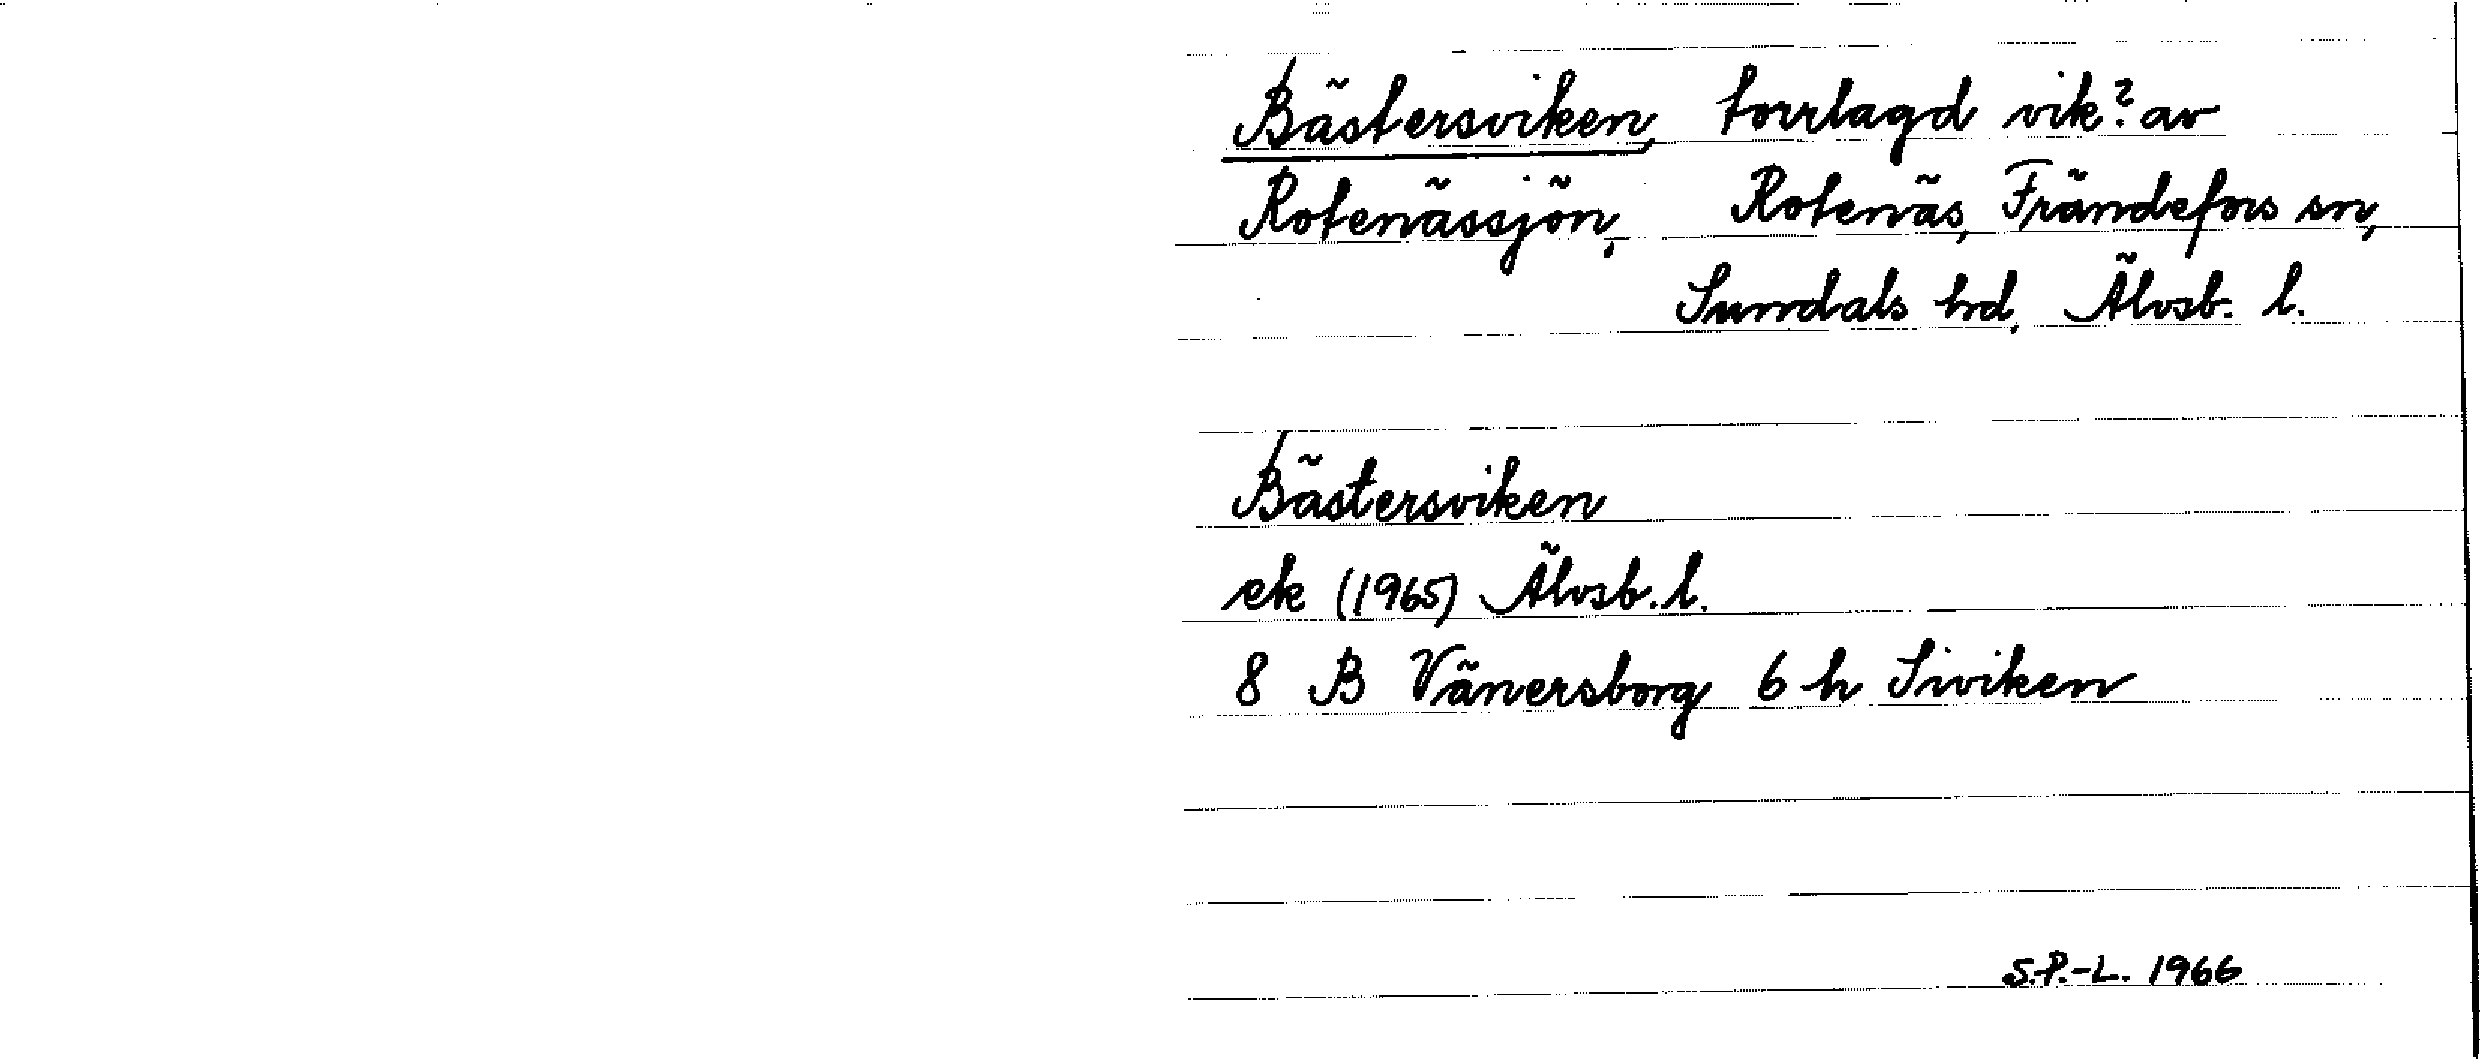 Bästersviken, torrlagd vik? av
Rotenässjön, Rotenäs, Frändefors sn,
Sundals hd, Älvsb. l.
Bästersviken
ek (1965) Älvsb. l.
8 B Vänersborg 6 h Siviken
S.P.-L. 1966